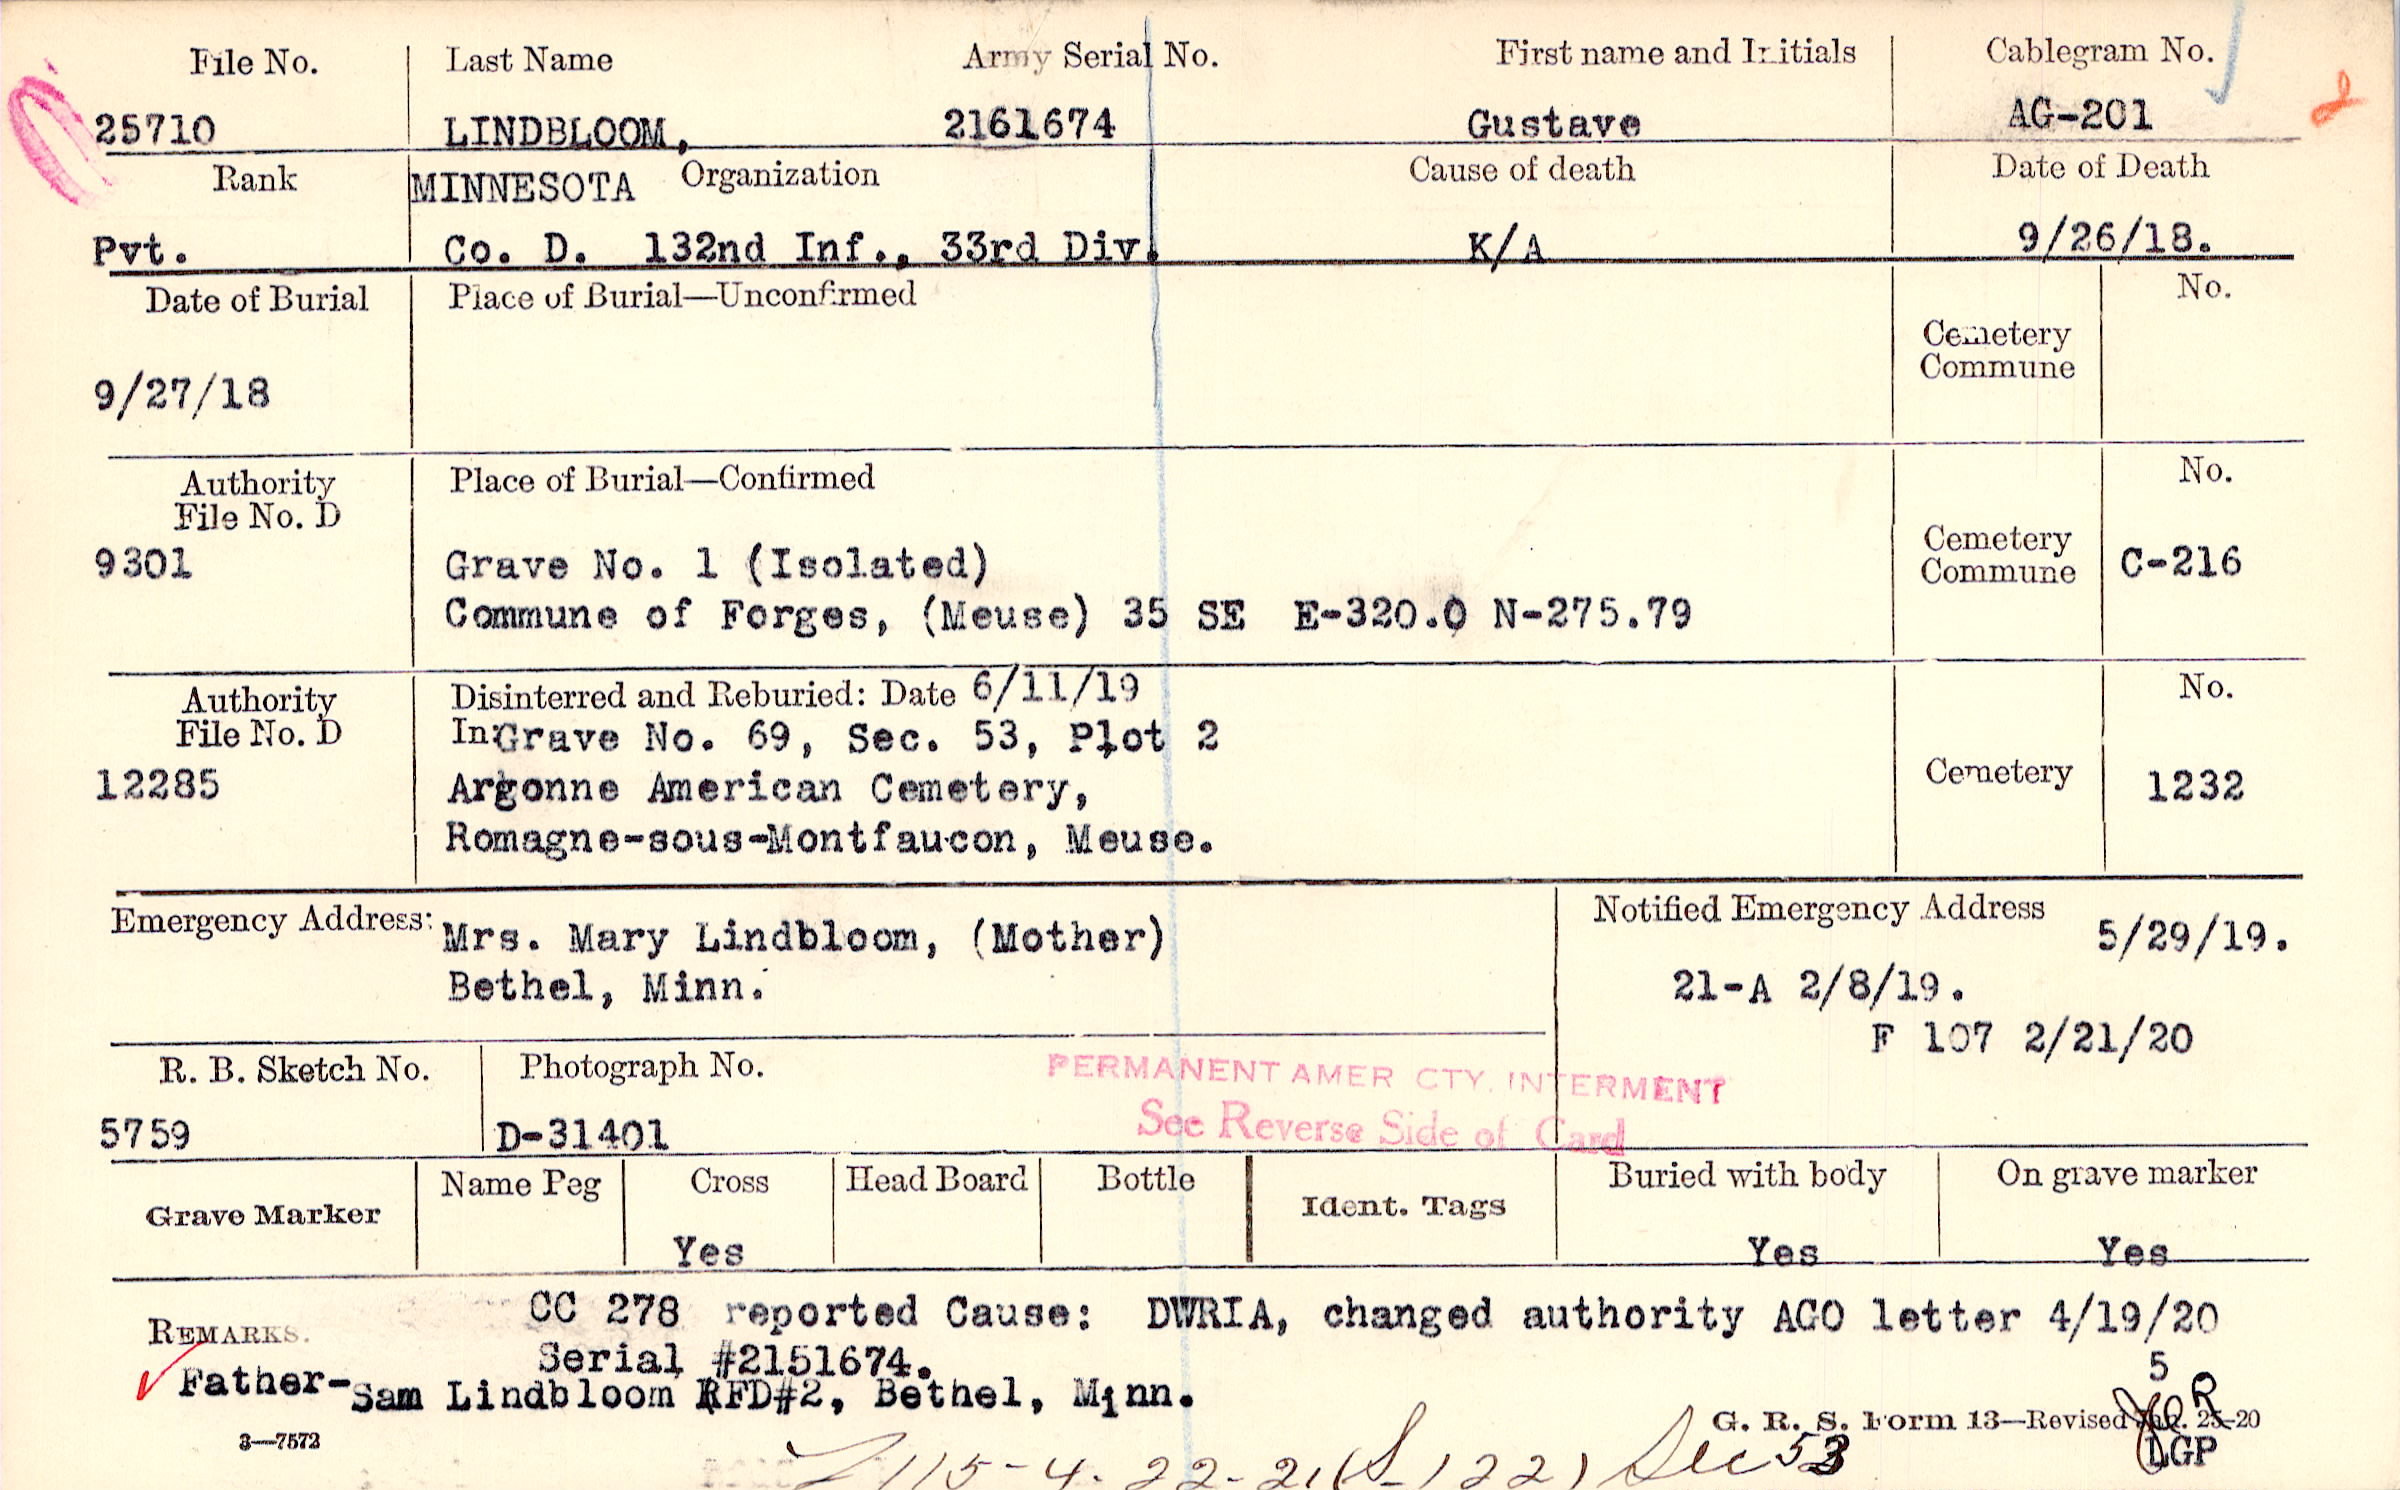 File No. Last Name Army Serial No. First name and Initials Cablegram No.
25710 LINDBLOOM, 2161674 Gustave AG-201
Rank MINNESOTA Organization Cause of death Date of Death
Pvt. Co. D. 132nd Inf., 33rd Div. K/A 9/26/18.
Date of Burial Place of Burial—Unconfirmed No.
Cemetery
Commune
9/27/18
Authority Place of Burial—Confirmed No.
File No. D
9301 Grave No. 1 (Isolated) Cemetery
Commune C-216
Commune of Forges, (Meuse) 35 SE E-320.0 N-275.79
Authority Disinterred and Reburied: Date 6/11/19 No.
File No. D In: Grave No. 69, Sec. 53, Plot 2
12285 Argonne American Cemetery, Cemetery 1232
Romagne-sous-Montfaucon, Meuse.
Emergency Address: Mrs. Mary Lindbloom, (Mother) Notified Emergency Address 5/29/19.
Bethel, Minn. 21-A 2/8/19.
F 107 2/21/20
R. B. Sketch No. Photograph No. PERMANENT AMER CTY. INTERMENT
5759 D-31401 See Reverse Side of Card
Grave Marker Name Peg Cross Head Board Bottle Ident. Tags Buried with body On grave marker
Yes Yes Yes
REMARKS. CC 278 reported Cause: DWRIA, changed authority AGO letter 4/19/20
Serial #2151674. 5
Father-Sam Lindbloom RFD#2, Bethel, Minn.
3—7572 G. R. S. Form 13—Revised Jan. 25-20
LGP
115-4-22-21(S-122) Sec 53